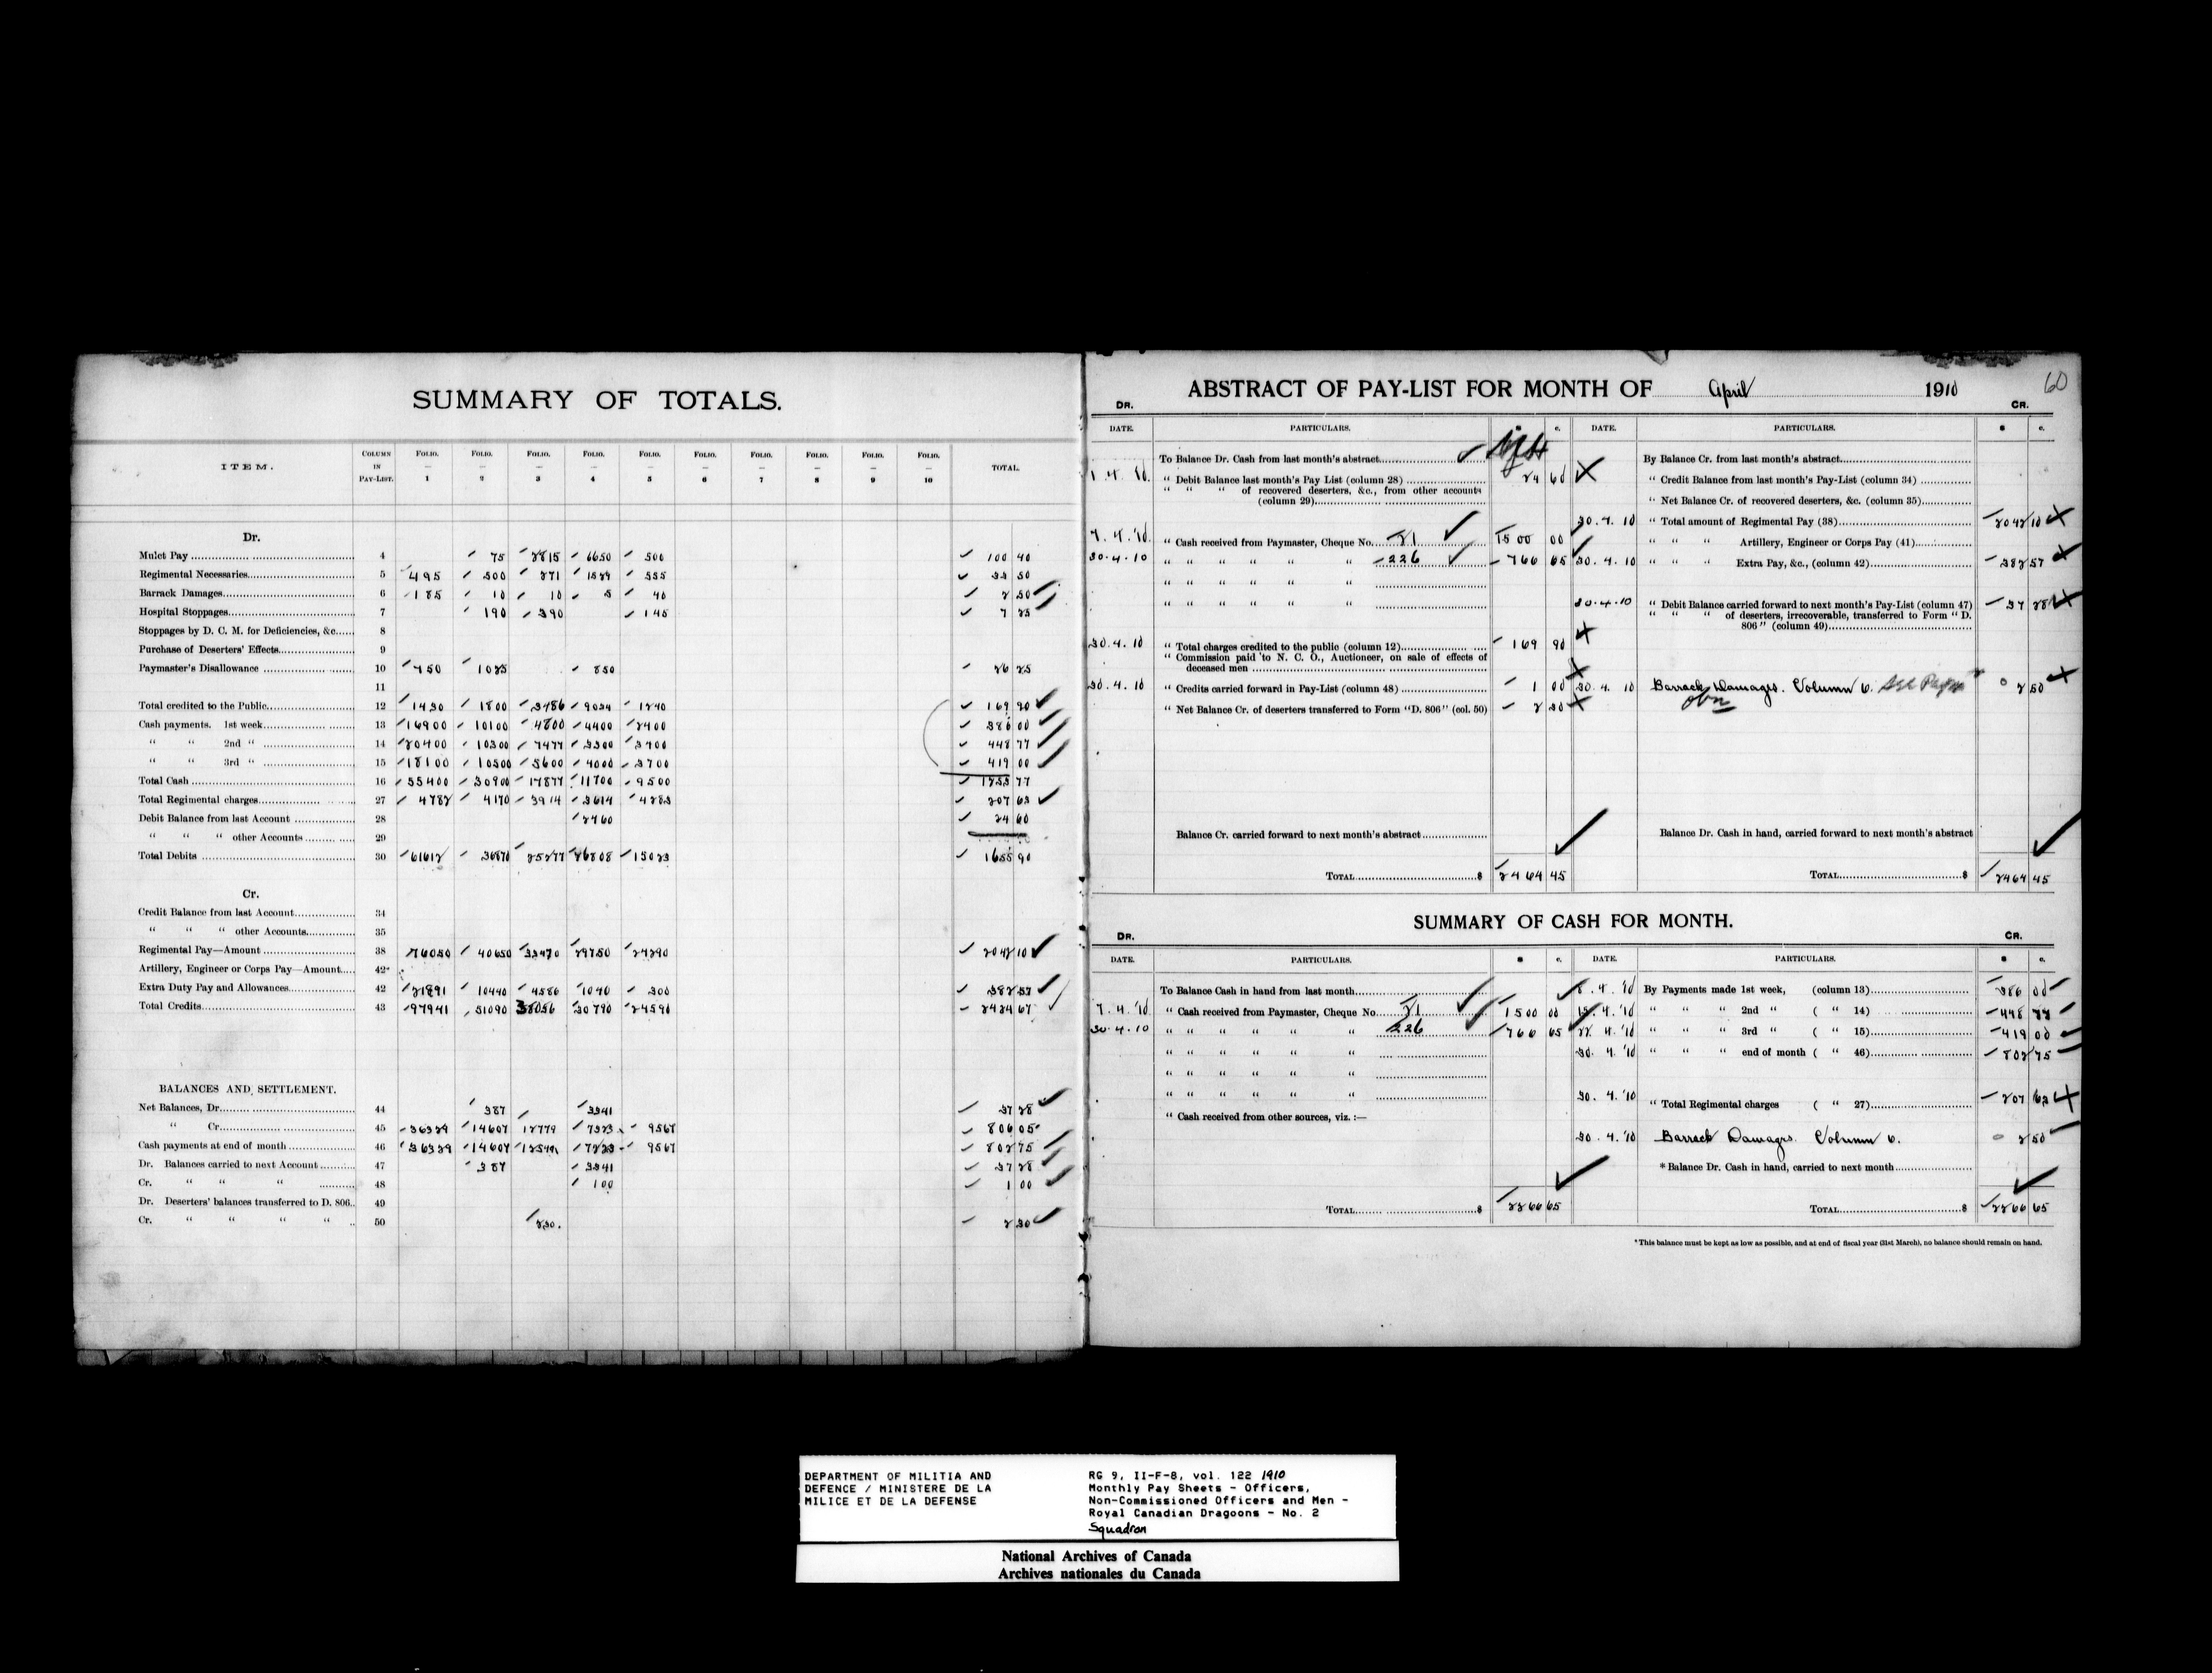 SUMMARY OF TOTALS.
ITEM. COLUMN IN PAY-LIST. FOLIO. — 1 FOLIO. — 2 FOLIO. — 3 FOLIO. — 4 FOLIO. — 5 FOLIO. — 6 FOLIO. — 7 FOLIO. — 8 FOLIO. — 9 FOLIO. — 10 TOTAL.
Dr.
Mulct Pay 4 75 2815 6650 500 100 40
Regimental Necessaries 5 495 300 871 1529 555
Barrack Damages 6 185 10 10 5 40 2 50
Hospital Stoppages 7 190 390 145 7 25
Stoppages by D. C. M. for Deficiencies, &c 8
Purchase of Deserters' Effects 9
Paymaster's Disallowance 10 750 1025 850 26 25
11
Total credited to the Public 12 1430 1800 3486 9034 1240 169 90
Cash payments. 1st week 13 16900 10100 4800 4400 2400 386 00
" " 2nd " 14 20400 10300 7477 3300 3400 448 77
" " 3rd " 15 18100 10500 5600 4000 3700 419 00
Total Cash 16 55400 30900 17877 11700 9500 1253 77
Total Regimental charges 27 4782 4170 3914 3614 4283 207 63
Debit Balance from last Account 28 2460 24 60
" " " other Accounts 29
Total Debits 30 61612 36870 25277 26808 15023 1655 90
Cr.
Credit Balance from last Account 34
" " " other Accounts 35
Regimental Pay—Amount 38 76050 40650 33470 29750 24290 2042 10
Artillery, Engineer or Corps Pay—Amount 42
Extra Duty Pay and Allowances 42 21891 10440 4586 1040 300 382 57
Total Credits 43 97941 51090 38056 30790 24590 2424 67
BALANCES AND SETTLEMENT.
Net Balances, Dr 44 387 3341 37 28
" Cr 45 36329 14607 12779 7323 9567 806 05
Cash payments at end of month 46 36329 14607 12549 7223 9567 802 75
Dr. Balances carried to next Account 47 387 3341 37 28
Cr. " " " 48 100 1 00
Dr. Deserters' balances transferred to D. 806 49
Cr. " " " " 50 230. 2 30
60
ABSTRACT OF PAY-LIST FOR MONTH OF April 1910
DR. CR.
DATE. PARTICULARS. $ c. DATE. PARTICULARS. $ c.
To Balance Dr. Cash from last month's abstract By Balance Cr. from last month's abstract
1.4.10. " Debit Balance last month's Pay List (column 28) 24 60 " Credit Balance from last month's Pay-List (column 34)
" " " of recovered deserters, &c., from other accounts (column 29) " Net Balance Cr. of recovered deserters, &c. (column 35)
30.4.10 " Total amount of Regimental Pay (38) 2042 10
7.4.'10 " Cash received from Paymaster, Cheque No. 21 1500 00 " " " Artillery, Engineer or Corps Pay (41)
30-4-10 " " " " " " 226 766 65 30.4.10 " " " Extra Pay, &c., (column 42) 382 57
" " " " " "
" " " " " " 30-4-10 " Debit Balance carried forward to next month's Pay-List (column 47) 37 28
" " " of deserters, irrecoverable, transferred to Form "D. 806" (column 49)
30.4.10 " Total charges credited to the public (column 12) 169 90
" Commission paid to N. C. O., Auctioneer, on sale of effects of deceased men
30.4.10 " Credits carried forward in Pay-List (column 48) 1 00 30.4.10 Barrack Damages. Column 6. 2 50
" Net Balance Cr. of deserters transferred to Form "D. 806" (col. 50) 2 30
Balance Cr. carried forward to next month's abstract Balance Dr. Cash in hand, carried forward to next month's abstract
TOTAL $ 2464 45 TOTAL $ 2464 45
SUMMARY OF CASH FOR MONTH.
DR. CR.
DATE. PARTICULARS. $ c. DATE. PARTICULARS. $ c.
To Balance Cash in hand from last month 8.4.'10 By Payments made 1st week, (column 13) 386 00
7.4.'10 " Cash received from Paymaster, Cheque No. 21 1500 00 15.4.'10 " " " 2nd " ( " 14) 448 77
30-4-10 " " " " " " 226 766 65 22.4.'10 " " " 3rd " ( " 15) 419 00
" " " " " " 30.4.'10 " " " end of month ( " 46) 802 75
" " " " " "
" " " " " " 30.4.'10 " Total Regimental charges ( " 27) 207 63
" Cash received from other sources, viz. :—
30.4.'10 Barrack Damages. Column 6. 2 50
* Balance Dr. Cash in hand, carried to next month
TOTAL $ 2266 65 TOTAL $ 2266 65
* This balance must be kept as low as possible, and at end of fiscal year (31st March), no balance should remain on hand.
DEPARTMENT OF MILITIA AND
DEFENCE / MINISTERE DE LA
MILICE ET DE LA DEFENSE
RG 9, II-F-8, vol. 122 1910
Monthly Pay Sheets - Officers,
Non-Commissioned Officers and Men -
Royal Canadian Dragoons - No. 2
Squadron
National Archives of Canada
Archives nationales du Canada